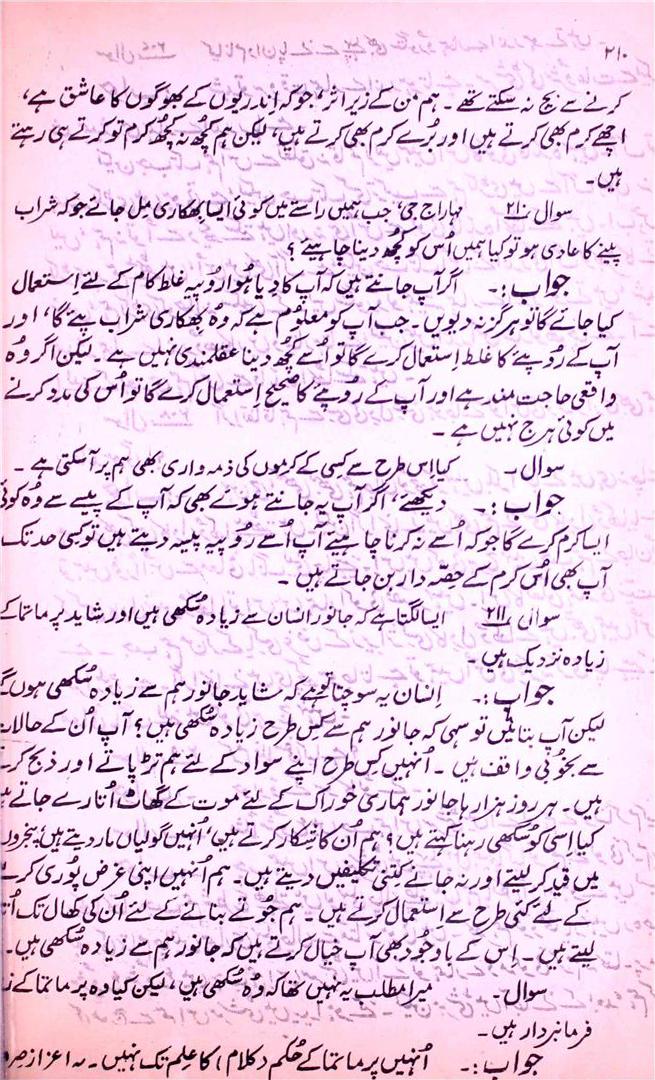 ۲۱۰
کرنے سے بچ نہ سکتے تھے ۔ ہم 'من کے زیر اثر' جو کہ اِندریوں کے بھوگوں کا عاشق ہے،
اچھے کرم بھی کرتے ہیں اور بُرے کرم بھی کرتے ہیں، لیکن ہم کچُھ نہ کچُھ کرم تو کرتے ہی رہتے
ہیں۔
سوال ۲۱۰ مہاراج جی، جب ہمیں راستے میں کوئی ایسا بھکاری مِل جائے جو کہ شراب
پینے کا عادی ہو تو کیا ہمیں اُس کو کچُھ دینا چاہیئے ؟
جواب :۔ اگر آپ جانتے ہیں کہ آپ کا دِیا ہُوا رُوپیہ غلط کام کے لئے اِستعمال
کیا جائے گا تو ہرگز نہ دیویں۔ جب آپ کو معلُوم ہے کہ وُہ بھکاری شراب پیئے گا، اور
آپ کے رُوپئے کا غلط اِستعمال کرے گا تو اُسے کچُھ دینا عقلمندی نہیں ہے ۔ لیکن اگر وُہ
واقعی حاجت مند ہے اور آپ کے رُوپئے کا صحیح اِستعمال کرے گا تو اُس کی مدد کرنے
میں کوئی ہرج نہیں ہے ۔
سوال ۔ کیا اِس طرح سے کسی کے کرموں کی ذمہ واری بھی ہم پر آسکتی ہے ۔
جواب :۔ دیکھئے، اگر آپ یہ جانتے ہوئے بھی کہ آپ کے پیسے سے وُہ کوئی
ایسا کرم کرے گا جو کہ اُسے نہ کرنا چاہیئے آپ اُسے رُوپیہ پیسہ دیتے ہیں تو کسی حد تک
آپ بھی اُس کرم کے حِصّہ دار بن جاتے ہیں ۔
سوال ۲۱۱ ایسا لگتا ہے کہ جانور انسان سے زیادہ سُکھی ہیں اور شاید پرماتما کے
زیادہ نزدیک ہیں ۔
جواب :۔ اِنسان یہ سوچتا تو ہے کہ شاید جانور ہم سے زیادہ سُکھی ہوں گے
لیکن آپ بتائیں تو سہی کہ جانور ہم سے کِس طرح زیادہ سُکھی ہیں؟ آپ اُن کے حالات
سے بخُوبی واقف ہیں ۔ اُنہیں کِس طرح اپنے سواد کے لئے ہم تڑپاتے اور ذبح کرتے
ہیں۔ ہر روز ہزارہا جانور ہماری خوراک کے لئے موت کے گھاٹ اُتارے جاتے ہیں
کیا اِسی کو سُکھی رہنا کہتے ہیں؟ ہم اُن کا شکار کرتے ہیں، اُنہیں گولیاں مار دیتے ہیں، پنجروں
میں قید کر لیتے اور نہ جانے کِتنی تکلیفیں دیتے ہیں۔ ہم اُنہیں اپنی غرض پُوری کرنے
کے لئے کئی طرح سے اِستعمال کرتے ہیں ۔ ہم جُوتے بنانے کے لئے اُن کی کھال تک اُتار
لیتے ہیں ۔ اِس کے باوجُود بھی آپ خیال کرتے ہیں کہ جانور ہم سے زیادہ سُکھی ہیں۔
سوال ۔ میرا مطلب یہ نہیں تھا کہ وُہ سُکھی ہیں، لیکن کیا وہ پرماتما کے
فرمانبردار ہیں ۔
جواب :۔ اُنہیں پرماتما کے حُکم (کلام) کا عِلم تک نہیں ۔ یہ اعزاز